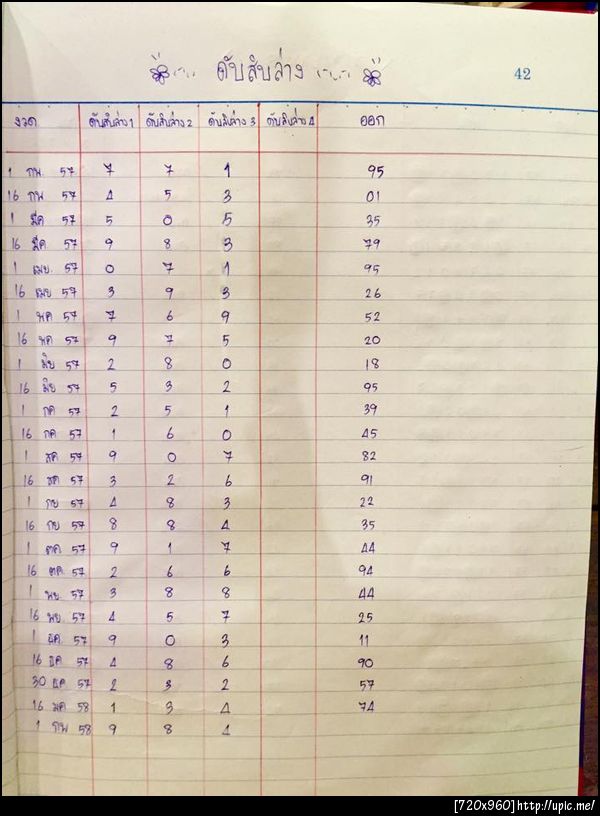 ดับสิบล่าง
42
งวด ดับสิบล่าง1 ดับสิบล่าง2 ดับสิบล่าง3 ดับสิบล่าง4 ออก
1 กพ. 57 7 7 1 95
16 กพ 57 4 5 3 01
1 มีค 57 5 0 5 35
16 มีค 57 9 8 3 79
1 เมย. 57 0 7 1 95
16 เมย 57 3 9 3 26
1 พค 57 7 6 9 52
16 พค 57 9 7 5 20
1 มิย 57 2 8 0 18
16 มิย 57 5 3 2 95
1 กค 57 2 5 1 39
16 กค 57 1 6 0 45
1 สค 57 9 0 7 82
16 สค 57 3 2 6 91
1 กย 57 4 8 3 22
16 กย 57 8 8 4 35
1 ตค 57 9 1 7 44
16 ตค. 57 2 6 6 94
1 พย. 57 3 8 8 44
16 พย. 57 4 5 7 25
1 ธค. 57 9 0 3 11
16 ธค 57 4 8 6 90
30 ธค 57 2 3 2 57
16 มค 58 1 3 4 74
1 กพ 58 9 8 4
[720x960]http://upic.me/